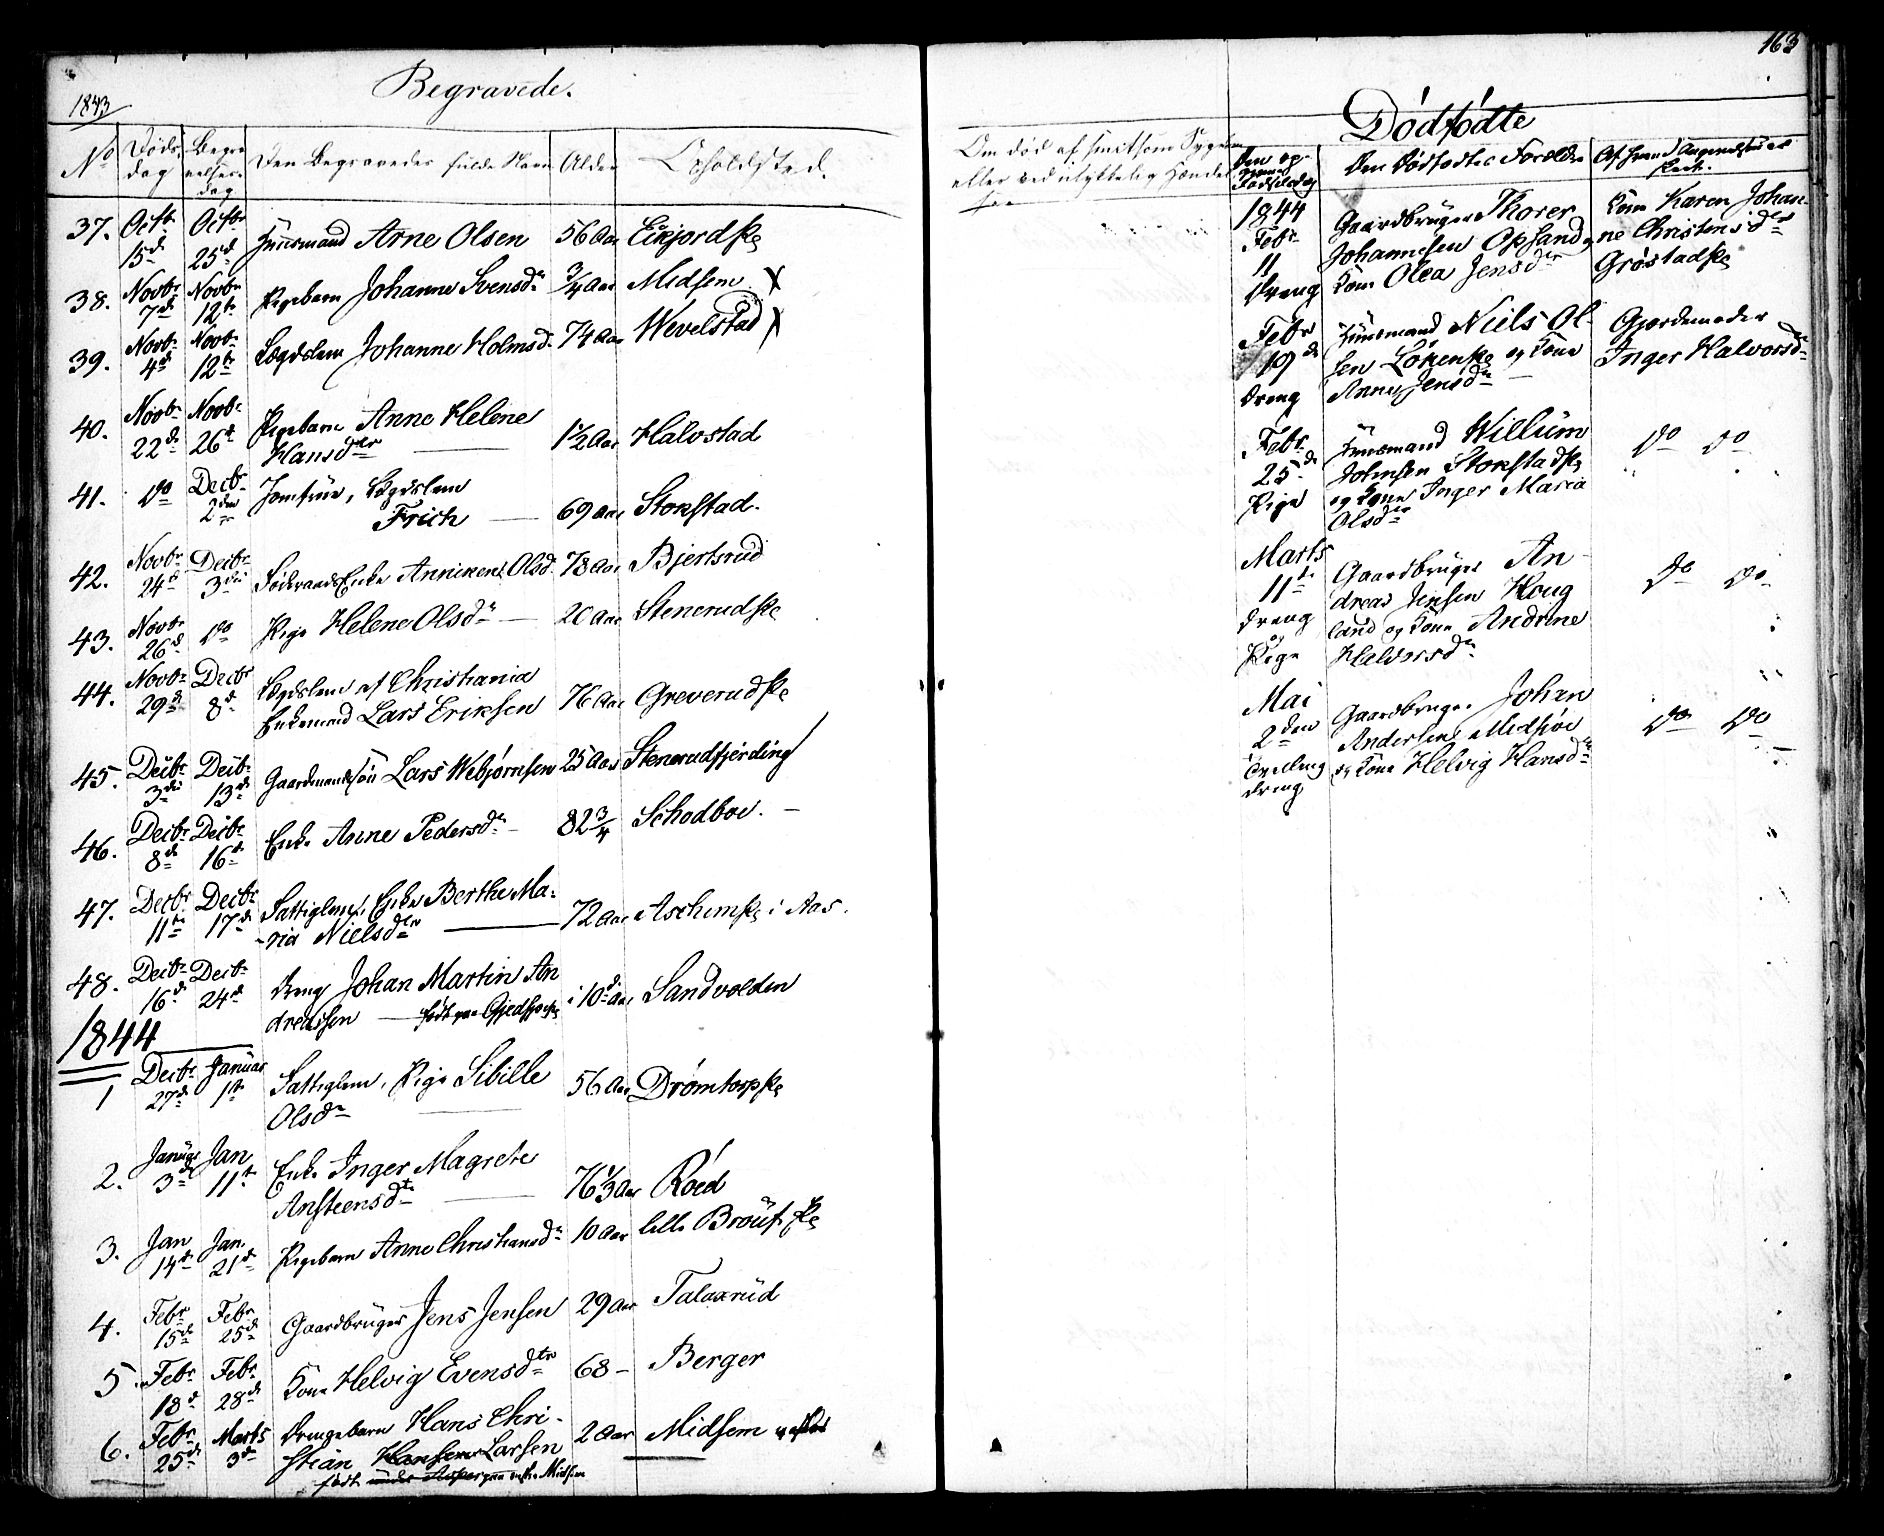 163
1843
Begravede.
No Døds dag Begravelses dag Den Begravedes fulde Navn Alder Opholdsted.
37. Octbr 15de Octbr 25de Huusmand Arne Olsen 56 Aar Eikjordske
38. Novbr 7de Novbr 12te Pigebarn Johanne Svensdr 3/4 Aar Midsem X
39. Novbr 4de Novbr 12te Lægdslem Johanne Holmsdr 74 Aar Wevelstad X
40. Novbr 22de Novbr 26de Pigebarn Anne Helene
Hansdter 1 1/2 Aar Halvstad
41. Do Decbr 2den Jomfrue, Lægdslem
Frich 69 Aar Stokstad.
42. Novbr 24de Decbr 3die Enke Anniken Olsd. 78 Aar Bjertsrud
43. Novbr 26de Do Pige Helene Olsdr 20 Aar Stenerudske
44. Novbr 29de Decbr 8de Lægdslem af Christiania
Enkemand Lars Eriksen 76 Aar Greverudske
45. Decbr 3die Decbr 13de Gaardmandssøn Lars Webjørnsen 25 Aar Stenerudfjerding
46. Decbr 8de Decbr 16de Enke Anne Pedersdr 82 3/4 Schodboe.
47. Decbr 11te Decbr 17de Fattiglem, Enke Berthe Ma-
ria Nielsdter 72 Aar Aschimske i Aas.
48. Decbr 16de Decbr 24de Dreng Johan Martin An
dreassen født paa i 10de Aar Sandvolden
1844
1 Decbr 27de Januar 1te Fattiglem, Pige Sibille
Olsdr 56 Aar Drømtorpske
2. Januar 3de Jan 11te Enke Inger Magrete
Ansteensdtr 76 1/3 Aar Roed
3. Jan 14de Jan. 21de Pigebarn Anne Christiansdr 10 Aar lille Brøut ske
4. Febr 15de Febr 25de Gaardbruger Jens Jensen 29 Aar Talaxrud
5. Febr 18de Febr 28de Kone Helvig Evensdtr 68 - Berger
6. Febr 25de Marts 3de Drengebarn Hans Chri-
stian Hansen Larsen 2 Aar Midsem
født
Om død af smitsom Sygdom
eller ved ulykkelig Hændel
se
Dødfødte
Den Dødfødtes Forældre
1844
Febr 11 Dreng
Gaardbruger Thorer
Johannesen Opsand og
Kone Olea Jensdr
Kone Karen Johan-
ne Christensdr
Grøstadske
Febr 19de Dreng
Huusmand Niels Ol-
sen Løkenske og Kone
Anne Jensdr
Gjordemoder
Inger Halvorsdr
Febr 25de Pige
Huusmand Willum
Johnsen Stokstadske
og Kone Inger Maria
Olsdr
Do Do
Marts 11te Dreng og Pige
Gaardbruger An-
dreas Jensen Houg
land og Kone Andrine
Halvorsdr
Do Do
Mai 2den Tvilling dreng
Gaardbruger Johan
Andersen Midsjøe
og Kone Helvig Hansdr
Do Do